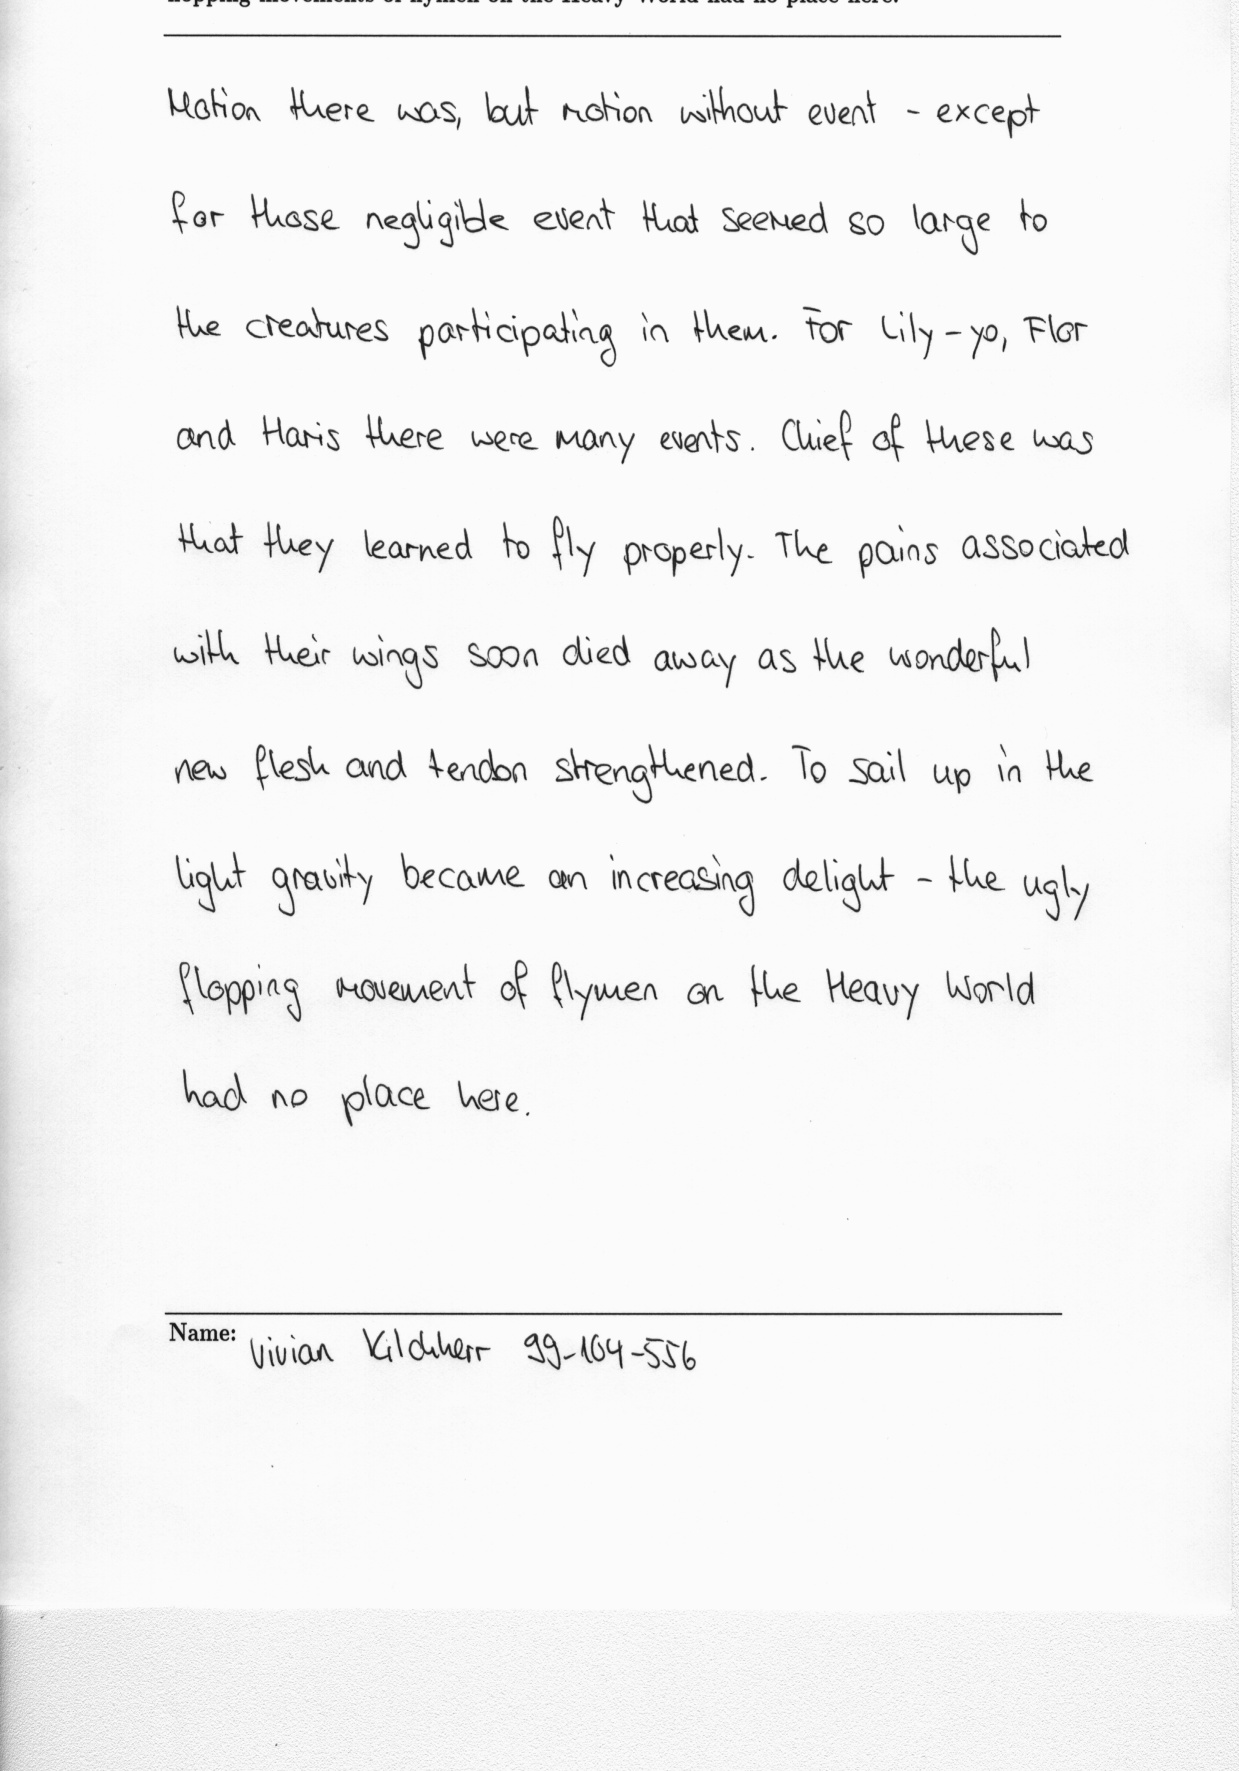 Motion there was, but motion without event - except
for those negligible event that seemed so large to
the creatures participating in them. For Lily-yo, Flor
and Haris there were many events. Chief of these was
that they learned to fly properly. The pains associated
with their wings soon died away as the wonderful
new flesh and tendon strengthened. To sail up in the
light gravity became an increasing delight - the ugly
flopping movement of flymen on the Heavy World
had no place here.
Name: Vivian Kilchherr 99-104-556